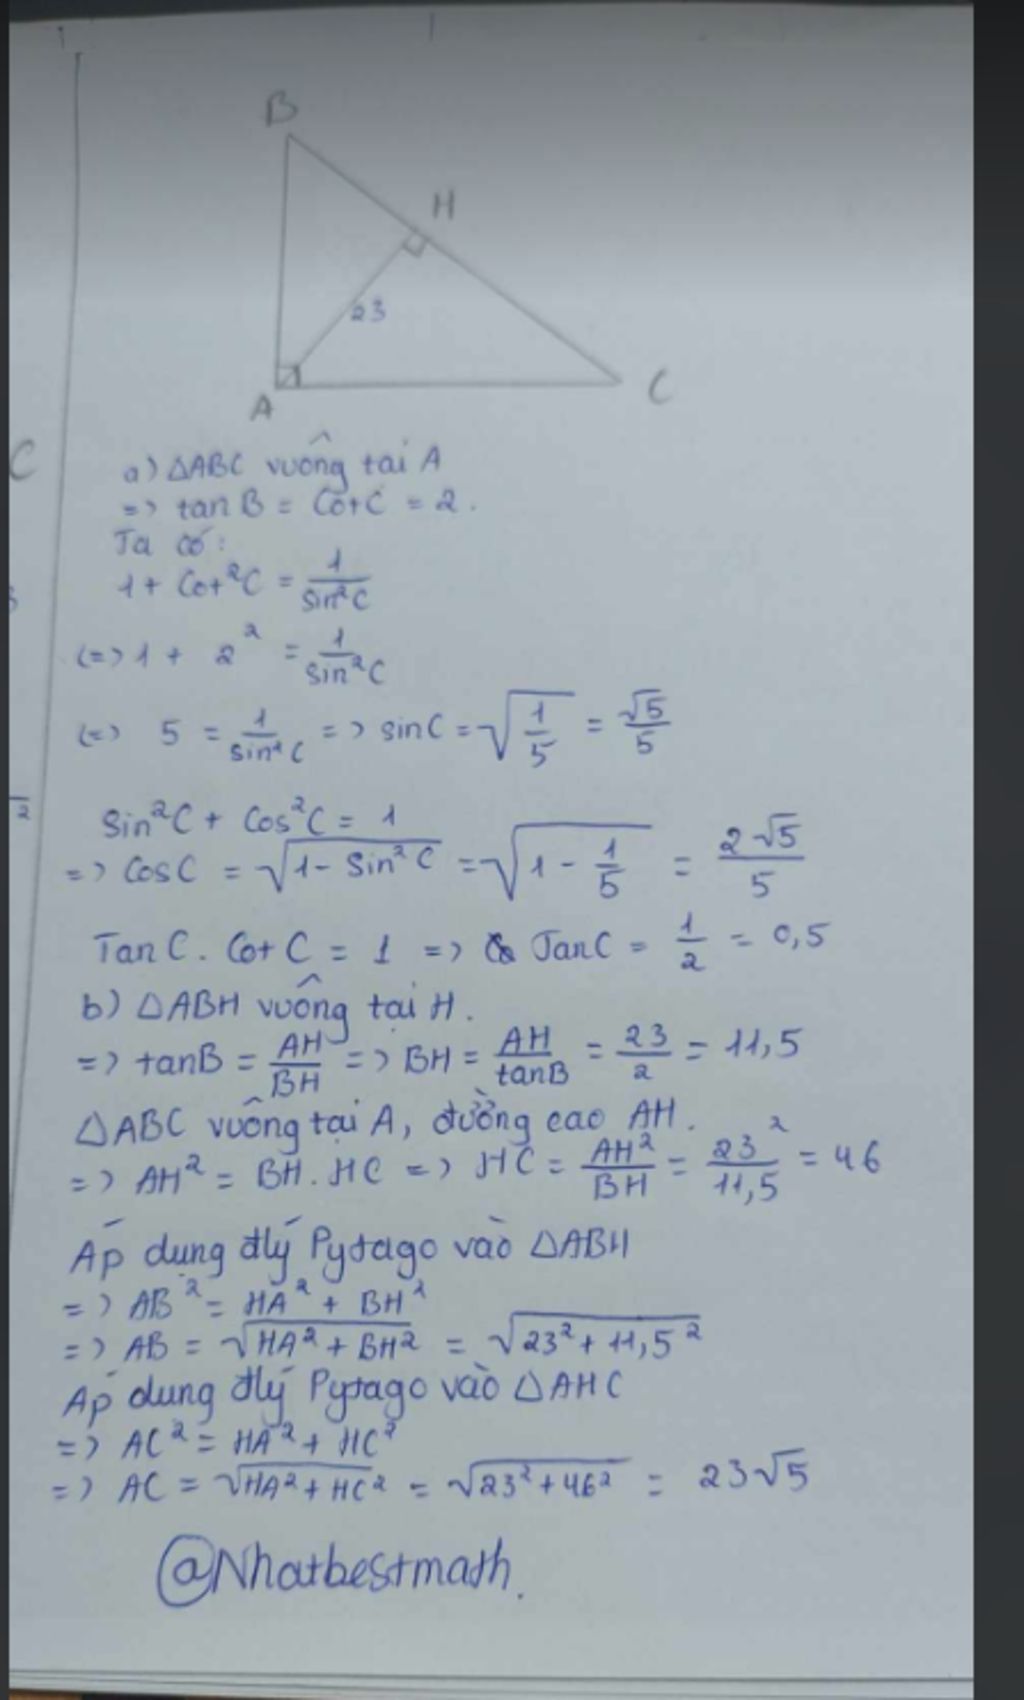 B
H
23
A
C
C
a) △ABC vuông tại A
=> tan B = Cot C = 2.
Ta có:
1 + Cot²C = 1/Sin²C
(=> 1 + 2² = 1/Sin²C
(=> 5 = 1/Sin²C => sin C = √(1/5) = √5/5
Sin²C + Cos²C = 1
=> Cos C = √(1 - Sin²C) = √(1 - 1/5) = 2√5/5
Tan C. Cot C = 1 => Tan C = 1/2 = 0,5
b) △ABH vuông tại H.
=> tan B = AH/BH => BH = AH/tan B = 23/2 = 11,5
△ABC vuông tại A, đường cao AH.
=> AH² = BH.HC => HC = AH²/BH = 23²/11,5 = 46
Áp dụng đlý Pytago vào △ABH
=> AB² = HA² + BH²
=> AB = √(HA² + BH²) = √(23² + 11,5²)
Áp dụng đlý Pytago vào △AHC
=> AC² = HA² + HC²
=> AC = √(HA² + HC²) = √(23² + 46²) = 23√5
@Nhatbestmath.